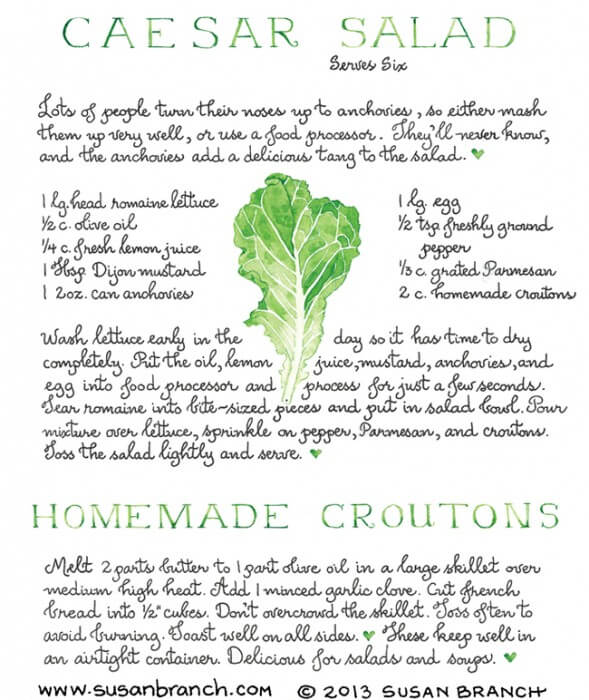 CAESAR SALAD
Serves Six
Lots of people turn their noses up to anchovies, so either mash
them up very well, or use a food processor. They'll never know,
and the anchovies add a delicious tang to the salad. ♥
1 lg. head romaine lettuce
½ c. olive oil
¼ c. fresh lemon juice
1 Tbsp. Dijon mustard
1 2oz. can anchovies
1 lg. egg
½ tsp freshly ground
pepper
⅓ c. grated Parmesan
2 c. homemade croutons
Wash lettuce early in the day so it has time to dry
completely. Put the oil, lemon juice, mustard, anchovies, and
egg into food processor and process for just a few seconds.
Tear romaine into bite-sized pieces and put in salad bowl. Pour
mixture over lettuce, sprinkle on pepper, Parmesan, and croutons.
Toss the salad lightly and serve. ♥
HOMEMADE CROUTONS
Melt 2 parts butter to 1 part olive oil in a large skillet over
medium high heat. Add 1 minced garlic clove. Cut french
bread into ½" cubes. Don't overcrowd the skillet. Toss often to
avoid burning. Toast well on all sides. ♥ These keep well in
an airtight container. Delicious for salads and soups. ♥
www.susanbranch.com © 2013 SUSAN BRANCH